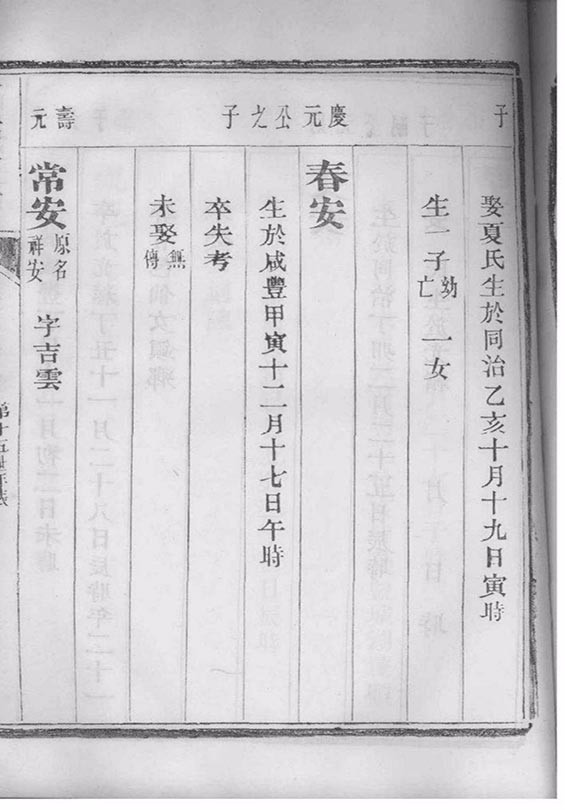 子
娶夏氏生於同治乙亥十月十九日寅時
生一子幼亡一女
慶元公之子
春安
生於咸豐甲寅十二月十七日午時
卒失考
未娶無傳
壽元
常安原名祥安字吉雲